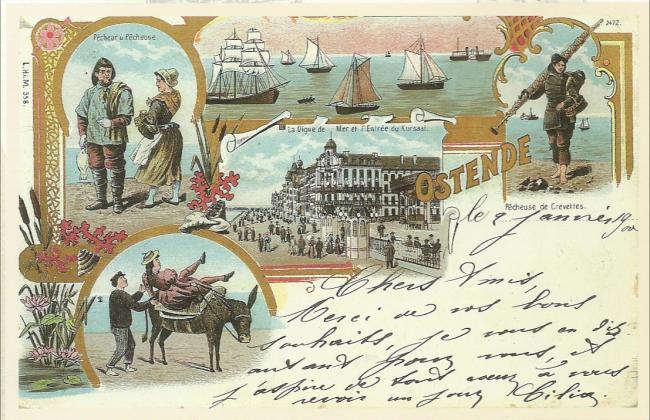 Pêcheur u Pêcheuse.
2472.
L.H.i.M. 358.
La Digue de Mer et l'Entrée du Kursaal.
OSTENDE
Pêcheuse de Crevettes.
le 2 janvier 1900
Chers Amis,
Merci de vos bons
souhaits, je vous en dis
autant pour vous, et
j'aspire de tout cœur à vous
revoir un jour